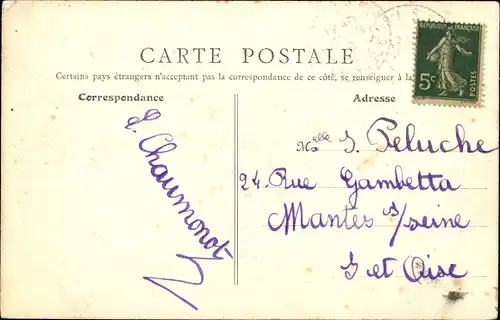 CARTE POSTALE
Certains pays étrangers n'acceptant pas la correspondance de ce côté, se renseigner à la
Correspondance
Adresse
L. Chaumonot
Melle S. Peluche
24. Rue Gambetta
Mantes s/seine
S et Oise
5c